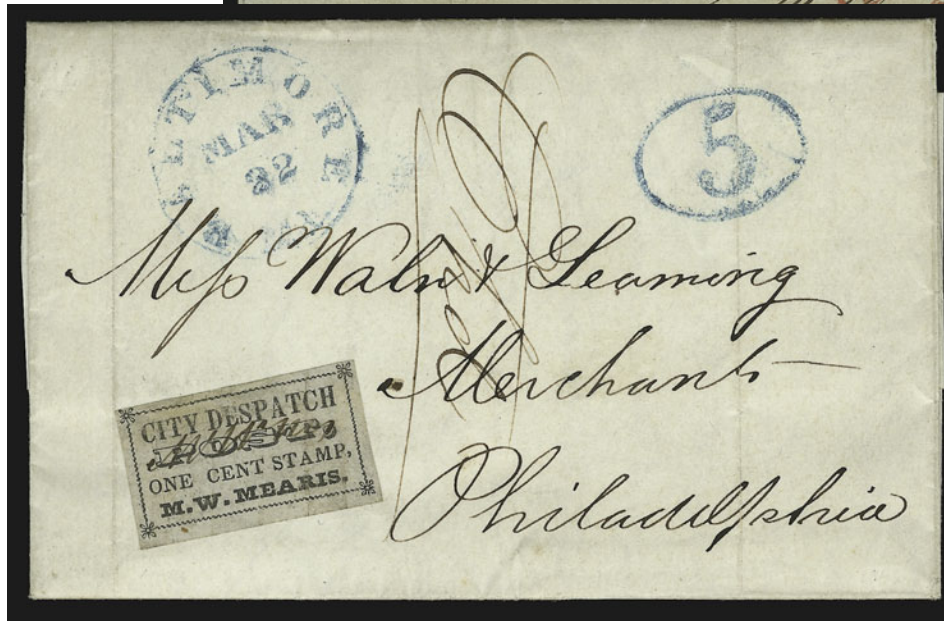 BALTIMORE
MAR
22
Md.
5
Mess Waln & Leaming
Merchants
Philadelphia
CITY DESPATCH
POST
ONE CENT STAMP,
M.W. MEARIS.